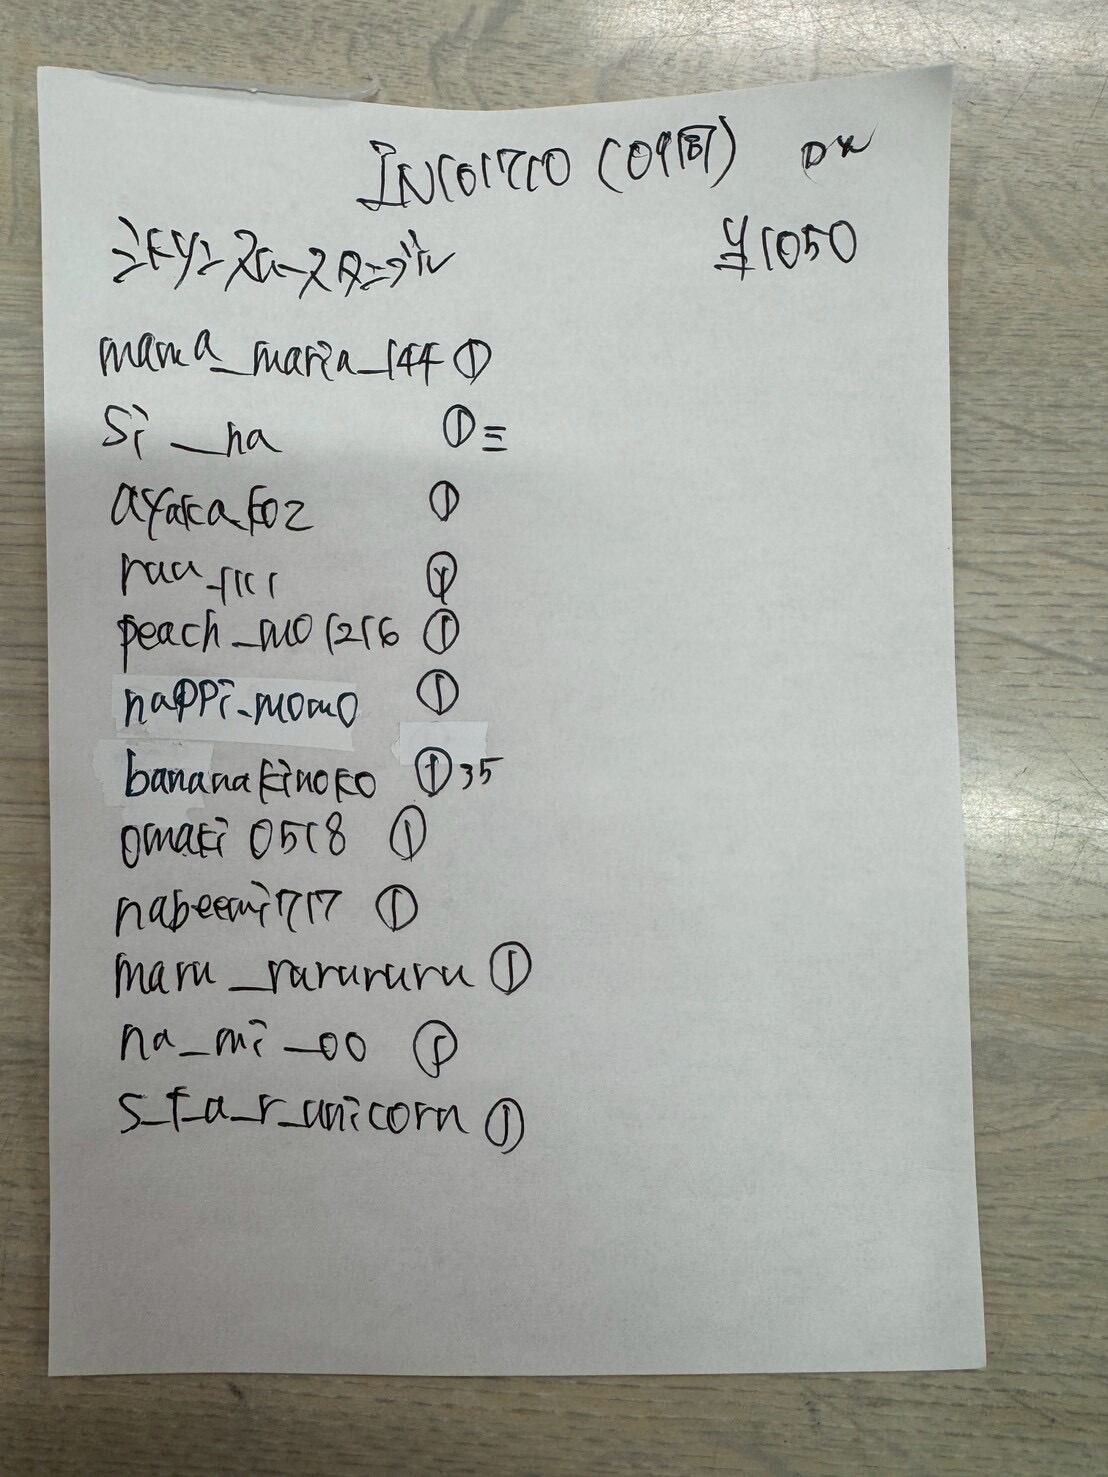 IN101710 (09留) DX
ミドリン スロースタンブル ¥1050
mama_maria_144 ①
Si_na ①=
ayaka_k02 ①
peach_m01216 ①
nappi_momo ①
bananakinoko ①35
omaki 0518 ①
nabeemi717 ①
maru_rarururu ①
na_mi_oo ①
s_t_a_r_unicorn ①